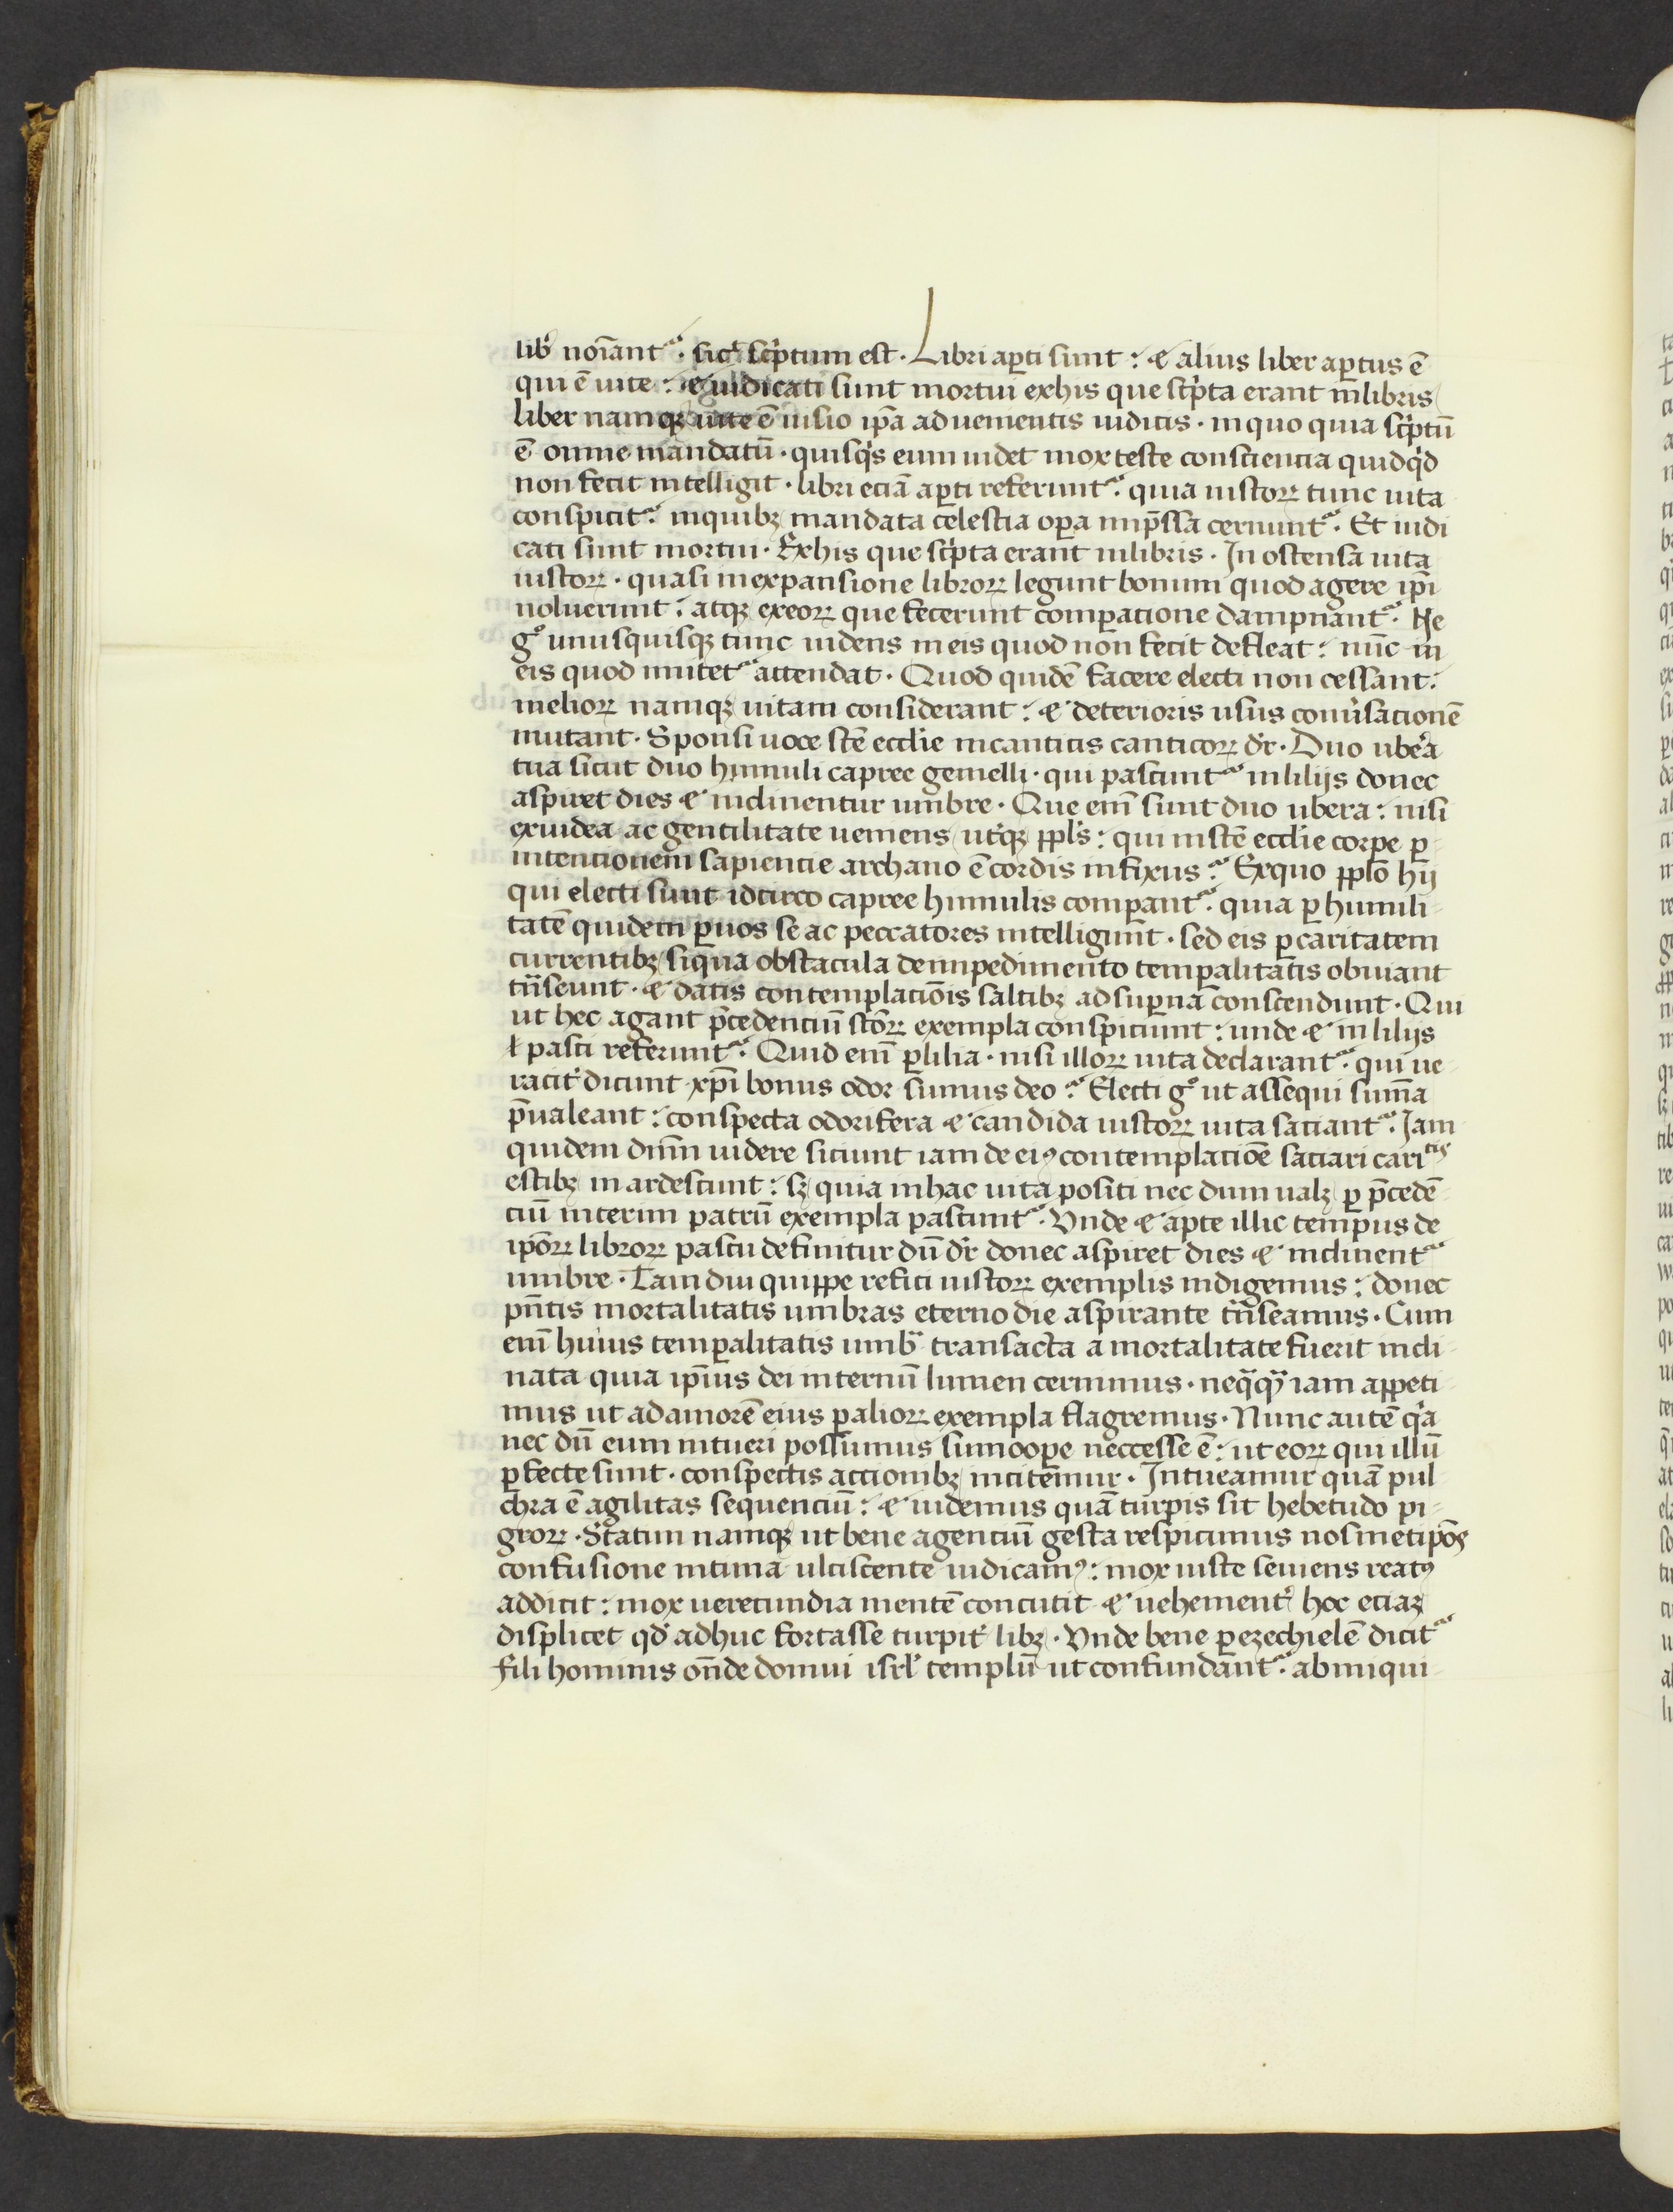 lib᷑ noi᷑ant᷑ · sic᷑ sc᷑ptum est · Libri ap̲ti sunt : ⁊ alius liber ap̲tus ē
qui ē uite : ⁊ iudicati sunt mortui exhis que sc᷑pta erant inlibris
liber namqꝫ uite ē uisio ip̄a aduenientis iudicis · inquo quia sc᷑ptū
ē omne mandatū · quisq᷑s eum uidet mox teste consciencia quidq᷑d
non fecit intelligit · libri eciā ap̲ti referunt᷑ quia iustoꝝ tunc uita
conspicit᷑ inquibꝫ mandata celestia op̲a imp̄ssa cernunt᷑ · Et iudi
cati sunt mortui · Exhis que sc᷑pta erant inlibris · In ostensa uita
iustoꝝ · quasi inexpansione libroꝝ legunt bonum quod agere ip̄i
noluerunt : atqꝫ exeoꝝ que fecerunt comp̲acione dampnant᷑ · Ne
gͦ unusquisqꝫ tunc uidens in eis quod non fecit defleat : nūc in
eis quod imitet᷑ attendat · Quod quidē facere electi non cessant :
melioꝝ namqꝫ uitam considerant : ⁊ deterioris usus conu᷑sacionē
mutant · Sponsi uoce stē ecclīe incanticis canticoꝝ dr᷑ · Duo ubera
tua sicut duo hinnuli capree gemelli · qui pascunt᷑ inlilijs donec
aspiret dies ⁊ inclinentur umbre · Que eni᷑ sunt duo ubera : nisi
exiudea ac gentilitate ueniens ut᷑qꝫ ppl᷑s : qui instē ecclīe corp̲e p̲
intencionem sapiencie archano ē cordis infixus : Exquo pplō hij
qui electi sunt idcirco capree hinnulis comp̲ant᷑ quia p̲ humili
tatē quidem p̲uos se ac peccatores intelligunt · sed eis p̲caritatem
currentibꝫ siqua obstacula deimpedimento temp̲alitatis obuiant
tn᷑seunt · ⁊ datis contemplaciōis saltibꝫ adsup̲na conscendunt · Qui
ut hec agant p̄cedenciū stōꝝ exempla conspiciunt : unde ⁊ inlilijs
ł pasci referunt᷑ · Quid eni᷑ p̲lilia · nisi illoꝝ uita declarant᷑ · qui ue
racit᷑ dicunt xp̄i bonus odor sumus deo : Electi gͦ ut assequi sum̄a
p̄ualeant : conspecta odorifera ⁊ candida iustoꝝ uita saciant᷑ · Jam
quidem dn̄m uidere siciunt iam de eiꝰ contemplaciōe saciari cari tis
estibꝫ inardescunt : sꝫ quia inhac uita positi nec dum ualꝫ p̲ p̄cedē
ciū interim patrū exempla pascunt᷑ · Vnde ⁊ apte illic tempus de
ip̄oꝝ libroꝝ pascu definitur dū dr᷑ donec aspiret dies ⁊ inclinent᷑
umbre · Tam diu quippe refici iustoꝝ exemplis indigemus : donec
pn̄tis mortalitatis umbras eterno die aspirante tn᷑seamus · Cum
eni᷑ huius temp̲alitatis umb᷑ transacta a mortalitate fuerit incli
nata quia ip̄ius dei internū lumen cernimus · neq̄q̄ iam appeti
mus ut adamorē eius p̲alioꝝ exempla flagremus · Nunc autē q᷑a
nec dū eum intueri possumus summoop̲e neccesse ē : ut eoꝝ qui illū
p̲fecte sunt · conspectis accionibꝫ incitemur · Intueamur quā pul
chra ē agilitas sequenciū : ⁊ uidemus quā turpis sit hebetudo pi
groꝝ · Statim namqꝫ ut bene agenciū gesta respicimus nosmetip̄os
confusione intima ulciscente iudicamꝰ : mox iuste seuiens reatꝰ
addicit : mox uerecundia mentē concutit ⁊ uehement᷑ hoc eciaꝫ
displicet qd᷑ adhuc fortasse turpit᷑ libꝫ · Vnde bene p̲ezechielē dicit᷑
fili hominis on̄de domui isrl᷑ templū ut confundant᷑ · abiniqui